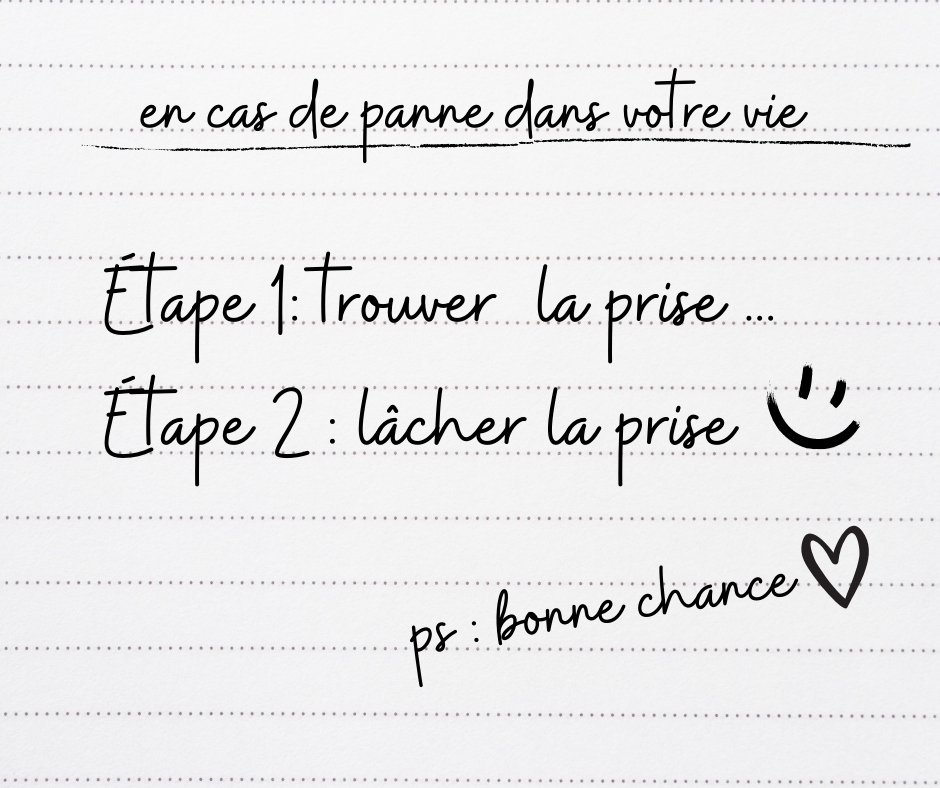 en cas de panne dans votre vie
Étape 1: Trouver la prise ...
Étape 2 : lâcher la prise
ps : bonne chance